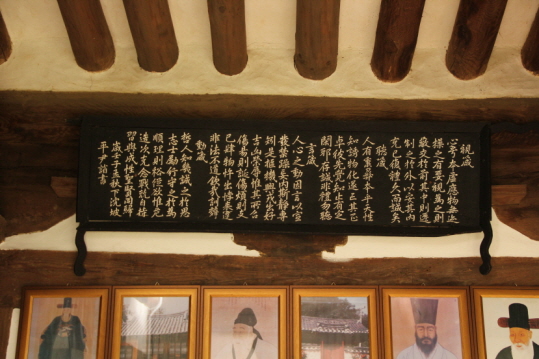 視箴
心兮本虛應物無迹
操之有要視爲之則
蔽交於前其中則遷
制之於外以安其内
克己復禮久而誠矣
聽箴
人有秉彝本乎天性
知誘物化遂亡其正
卓彼先覺知止有定
閑邪存誠非禮勿聽
言箴
人心之動因言以宣
發禁躁妄内斯靜專
矧是樞機興戎出好
吉凶榮辱惟其所召
傷易則誕傷煩則支
己肆物忤出悖來違
非法不道欽哉訓辭
動箴
哲人知幾誠之於思
志士勵行守之於爲
順理則裕從欲惟危
造次克念戰兢自持
習與性成聖賢同歸
歲壬子秋下坡
平尹書